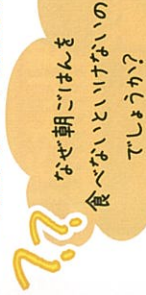 なぜ朝ごはんを
食べないといけないの
でしょうか?